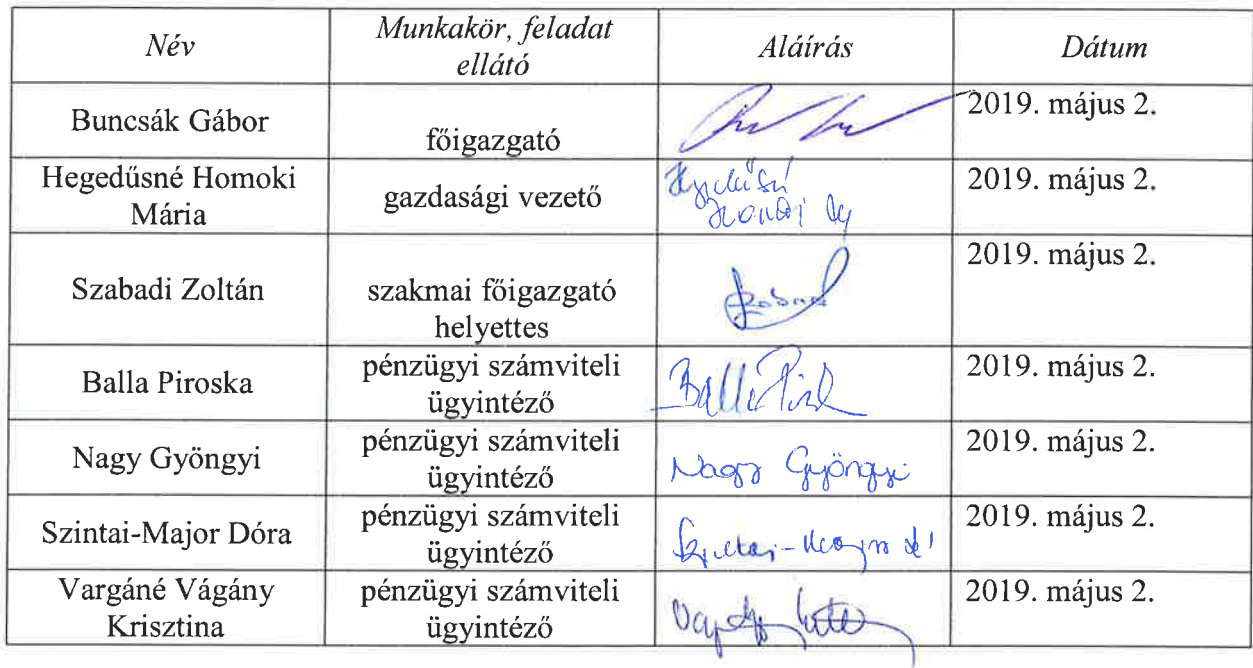 Név
Munkakör, feladat
ellátó
Aláírás
Dátum
Buncsák Gábor
főigazgató
2019. május 2.
Hegedűsné Homoki
Mária
gazdasági vezető
2019. május 2.
Szabadi Zoltán
szakmai főigazgató
helyettes
2019. május 2.
Balla Piroska
pénzügyi számviteli
ügyintéző
2019. május 2.
Nagy Gyöngyi
pénzügyi számviteli
ügyintéző
Nagy Gyöngyi
2019. május 2.
Szintai-Major Dóra
pénzügyi számviteli
ügyintéző
2019. május 2.
Vargáné Vágány
Krisztina
pénzügyi számviteli
ügyintéző
2019. május 2.